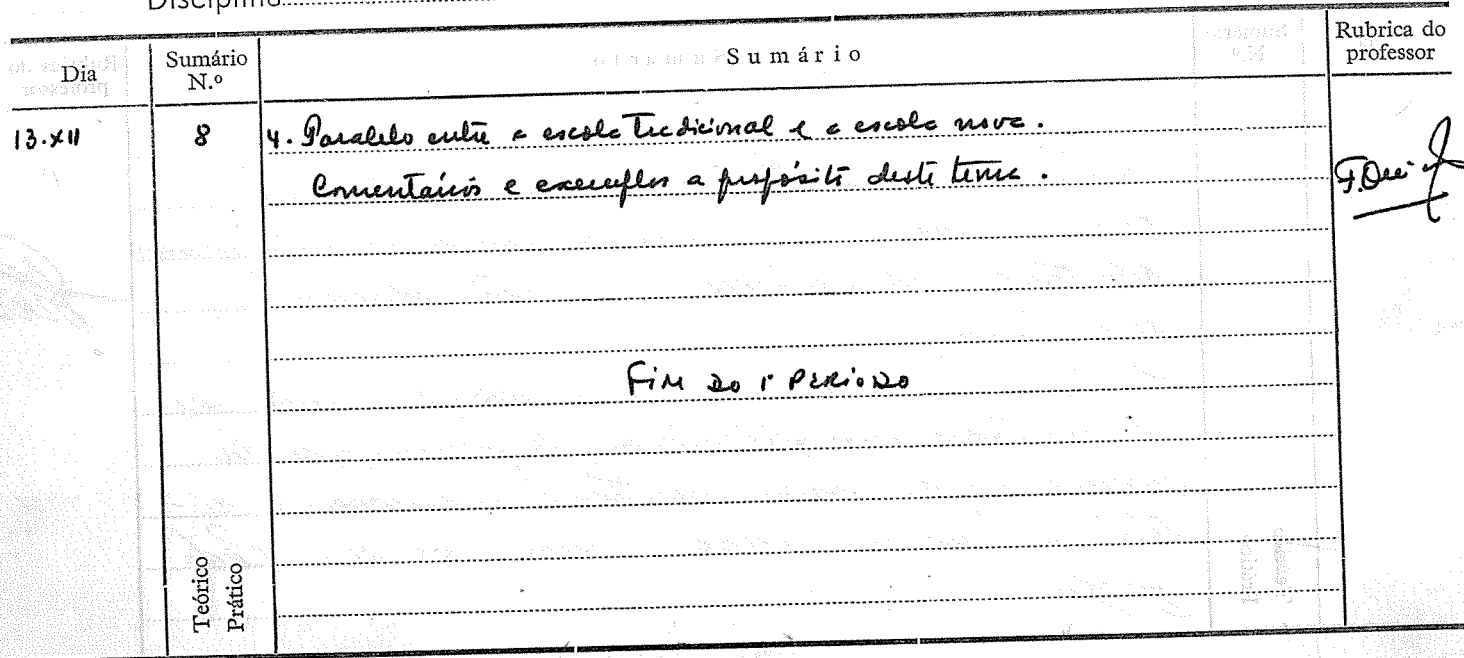 Disciplina
Dia
Sumário N.º
Sumário
Rubrica do professor
13.XII
8
4. Paralelo entre a escola tradicional e a escola nova.
Comentários e exemplos a propósito deste tema.
FIM DO 1º PERIODO
Teórico
Prático